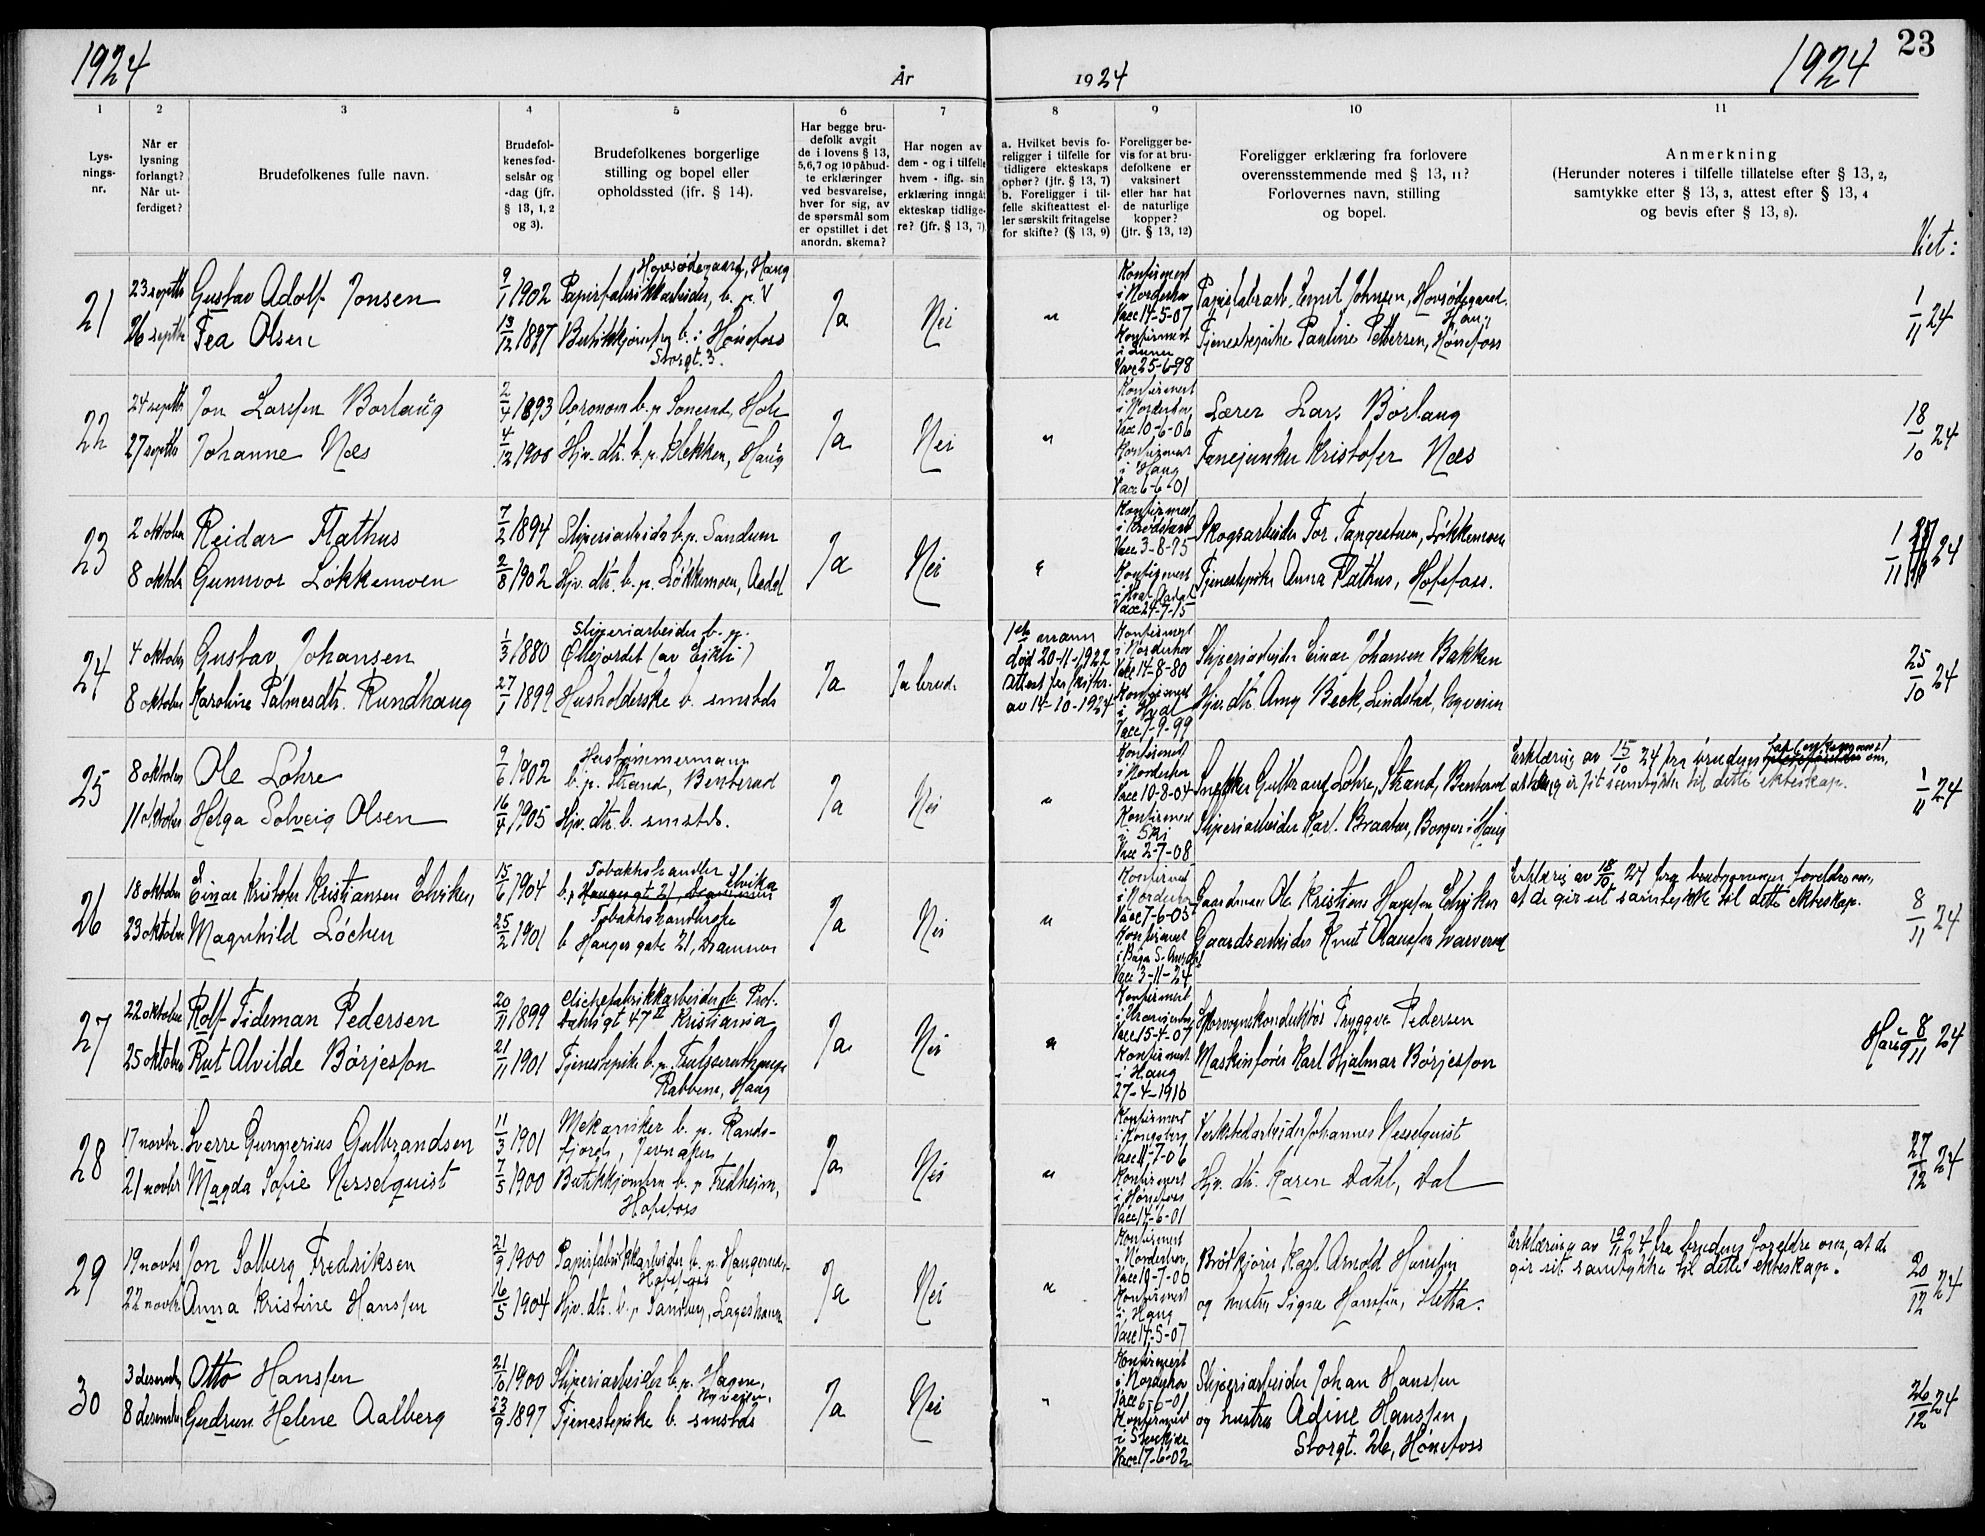 1924
År
1924
1924
23
1
2
3
4
5
6
7
8
9
10
11
Lys-
nings-
nr.
Når er
lysning
forlangt?
Når ut-
ferdiget?
Brudefolkenes fulle navn.
Brudefol-
kenes fød-
selsår og
-dag (jfr.
§ 13, 1, 2
og 3).
Brudefolkenes borgerlige
stilling og bopel eller
opholdssted (jfr. § 14).
Har begge bru-
defolk avgit
de i lovens § 13,
5,6,7 og 10 påbud-
te erklæringer
ved besvarelse,
hver for sig, av
de spørsmål som
er opstillet i det
anordn. skema?
Har nogen av
dem - og i tilfelle
hvem - iflg. sin
erklæring inngåt
ekteskap tidlige-
re? (jfr. § 13, 7)
a. Hvilket bevis fo-
religger i tilfelle for
tidligere ekteskaps
ophør? (jfr. § 13, 7)
b. Foreligger i til-
felle skifteattest el-
ler særskilt fritagelse
for skifte? (§ 13, 9)
Foreligger be-
vis for at bru-
defolkene er
vaksinert
eller har hat
de naturlige
kopper?
(jfr. § 13, 12)
Foreligger erklæring fra forlovere
overensstemmende med § 13, 11?
Forlovernes navn, stilling
og bopel.
Anmerkning
(Herunder noteres i tilfelle tillatelse efter § 13, 2,
samtykke efter § 13, 3, attest efter § 13, 4
og bevis efter § 13, 8).
Viet:
21
23 septbr Gustav Adolf Jonsen 9/1 1902 Papirfabrikkarbeider, b. p.
26 septbr Fea Olsen 13/12 1897 b. i Hønefoss
Storgt. 3.
Ja
Nei
"
Konfirmert
i Norderhov
Vacc 14-5-07
Konfirmert
i Lunner
Vacc 25-6-98
Johnsen,
Tjenestepike Pauline Pettersen, Hønefoss
1/11 24
22
24 septbr Jon Larssen Borlaug 2/4 1893 Agronom b. p. Hole
27 septbr Johanne Næs 4/12 1900 Hjv. dtr. b. p. Klekken, Haug
Ja
Nei
"
Konfirmert
i Norderhov
Vac 10-6-06
Konfirmert
i Haug
Vacc 6-6-01
Lærer Lars Borlaug
Fanejunker Kristofer Næs
18/10 24
23
2 oktober Reidar Flathus 7/2 1894 Sliperiarbeider b. p. Sandum
8 oktober Gunnvor Løkkemoen 2/8 1902 Hjv. dtr. b. p. Løkkemoen, Aadal
Ja
Nei
Konfirmert
Vacc 3-8-95
Konfirmert
Vacc 24-7-15
Skogsarbeider Tor Løkkemoen
Tjenestepike Anna Flathus, Hofsfoss.
1/11 24
24
Sliperiarbeider b. p.
4 oktober Gustav Johansen 1/3 1880
8 oktober Karoline Palmesdtr. Rundhaug 27/1 1899 Husholderske b. smstds
Ja
Ja brud.
1ste mann
død 20-11-1922
av 14-10-1924
Konfirmert
i Norderhov
Vacc 14-8-80
Konfirmert
i Hval
Vacc 7-9-99
Sliperiarbeider Einar Johansen Bakken
Hjv. dtr. Amy Beck, Lindstad,
25/10 24
25
8 oktober Ole Lohre 9/6 1902 Hustømmermann
b. p. Strand, Benterud
11 oktober Helga Solveig Olsen 16/4 1905 Hjv. dtr. b. smstds.
Ja
Nei
"
Konfirmert
i Norderhov
Vacc 10-8-04
Konfirmert
i Ski
Vacc 2-7-08
Snekker Gulbrand Lohre, Strand, Benterud
Sliperiarbeider Karl. Braaten, Borgen i Haug
Erklæring av 15/10 24 fra brudens om,
at gir sit samtykke til dette ekteskap.
1/11 24
26
Tobakkshandler
18 oktober Einar Kristofer Kristiansen Elviken, 15/6 1904 b. p Haugesgt 21, Elvika
Tobakkshandlerske
23 oktober Magnhild Løchen 25/2 1901 b Hauges gate 21, Drammen
Ja
Nei
"
Konfirmert
i Norderhov
Vacc 7-6-05
Konfirmert
Vacc 3-11-24
Gaardmann Ole Kristian Hanssen Elviken
Gaardsarbeider Knut
Erklæring av 18/10 24 fra brudgommens foreldre om,
at de gir sit samtykke til dette ekteskap.
8/11 24
27
22 oktober Rolf Tideman Pedersen 20/11 1899 Clichefabrikkarbeider b.
47 II Kristiania
25 oktober Rut Alvilde Børjesson 21/11 1901 Tjenestepike b. p.
Rabbene, Haug
Ja
Nei
"
Konfirmert
Vacc 15-4-07
Konfirmert
i Haug
27-4-1916
Sporvognskonduktør Tryggve Pedersen
Maskinfører Karl Hjalmar Børjesson
Haug 8/11 24
28
17 novbr. Sverre Gunnerius Gulbrandsen 11/3 1901 Mekaniker b. p. Rands-
fjord, Jevnaker
21 novbr Magda Sofie Nesselquist 7/5 1900 b. p Fredheim,
Hofsfoss
Ja
Nei
"
Konfirmert
i Kongsberg
Vacc 11-7-06
Konfirmert
i Hønefoss
Vacc 14-6-01
Verkstedarbeider Johannes Nesselquist
Hjv. dtr. Karen Dahl, Dal
27/12 24
29
19 novbr Jon Solberg Fredriksen 21/9 1900 Papirfabrikkarbeider b. p.
Hofsfoss
22 novbr. Anna Kristine Hanssen 16/5 1904 Hjv. dtr. b. p
Ja
Nei
"
Konfirmert
i Norderhov
Vacc 19-7-06
Konfirmert
i Haug
Vacc 14-5-07
Brødkjører Karl Arnold Hanssen
og hustru Signe Hanssen,
Erklæring av 19/11 24 fra brudens foreldre om, at de
gir sit samtykke til dette ekteskap.
20/12 24
30
3 desember Otto Hanssen 21/10 1900 Sliperiarbeider b. p. Hagen,
8 desember Gudrun Helene Aalberg 23/9 1897 Tjenestepike b. smstds
Ja
Nei
"
Konfirmert
i Norderhov
Vacc 6-6-01
Konfirmert
i Steinkjer
Vacc 17-6-02
Sliperiarbeider Johan Hanssen
og hustru Adine Hanssen
Storgt. 26, Hønefoss
26/12 24